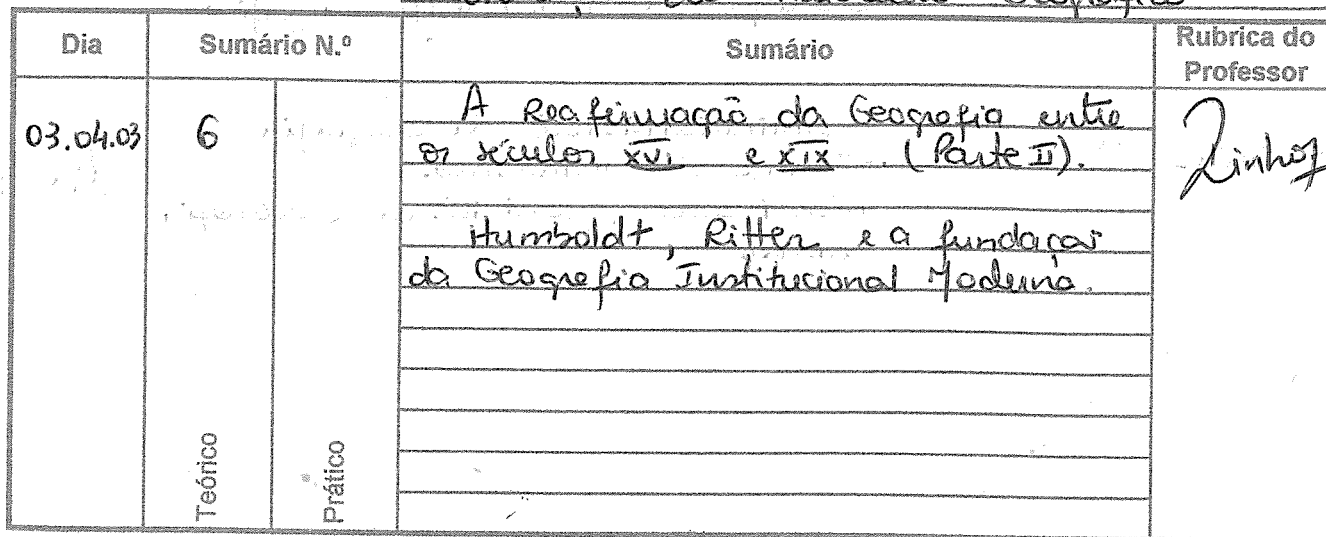 Dia
Sumário N.º
Sumário
Rubrica do
Professor
03.04.03
6
A Reafirmação da Geografia entre
os séculos XVI e XIX. (Parte II).
Humboldt, Ritter e a fundação
da Geografia Institucional Moderna.
Teórico
Prático